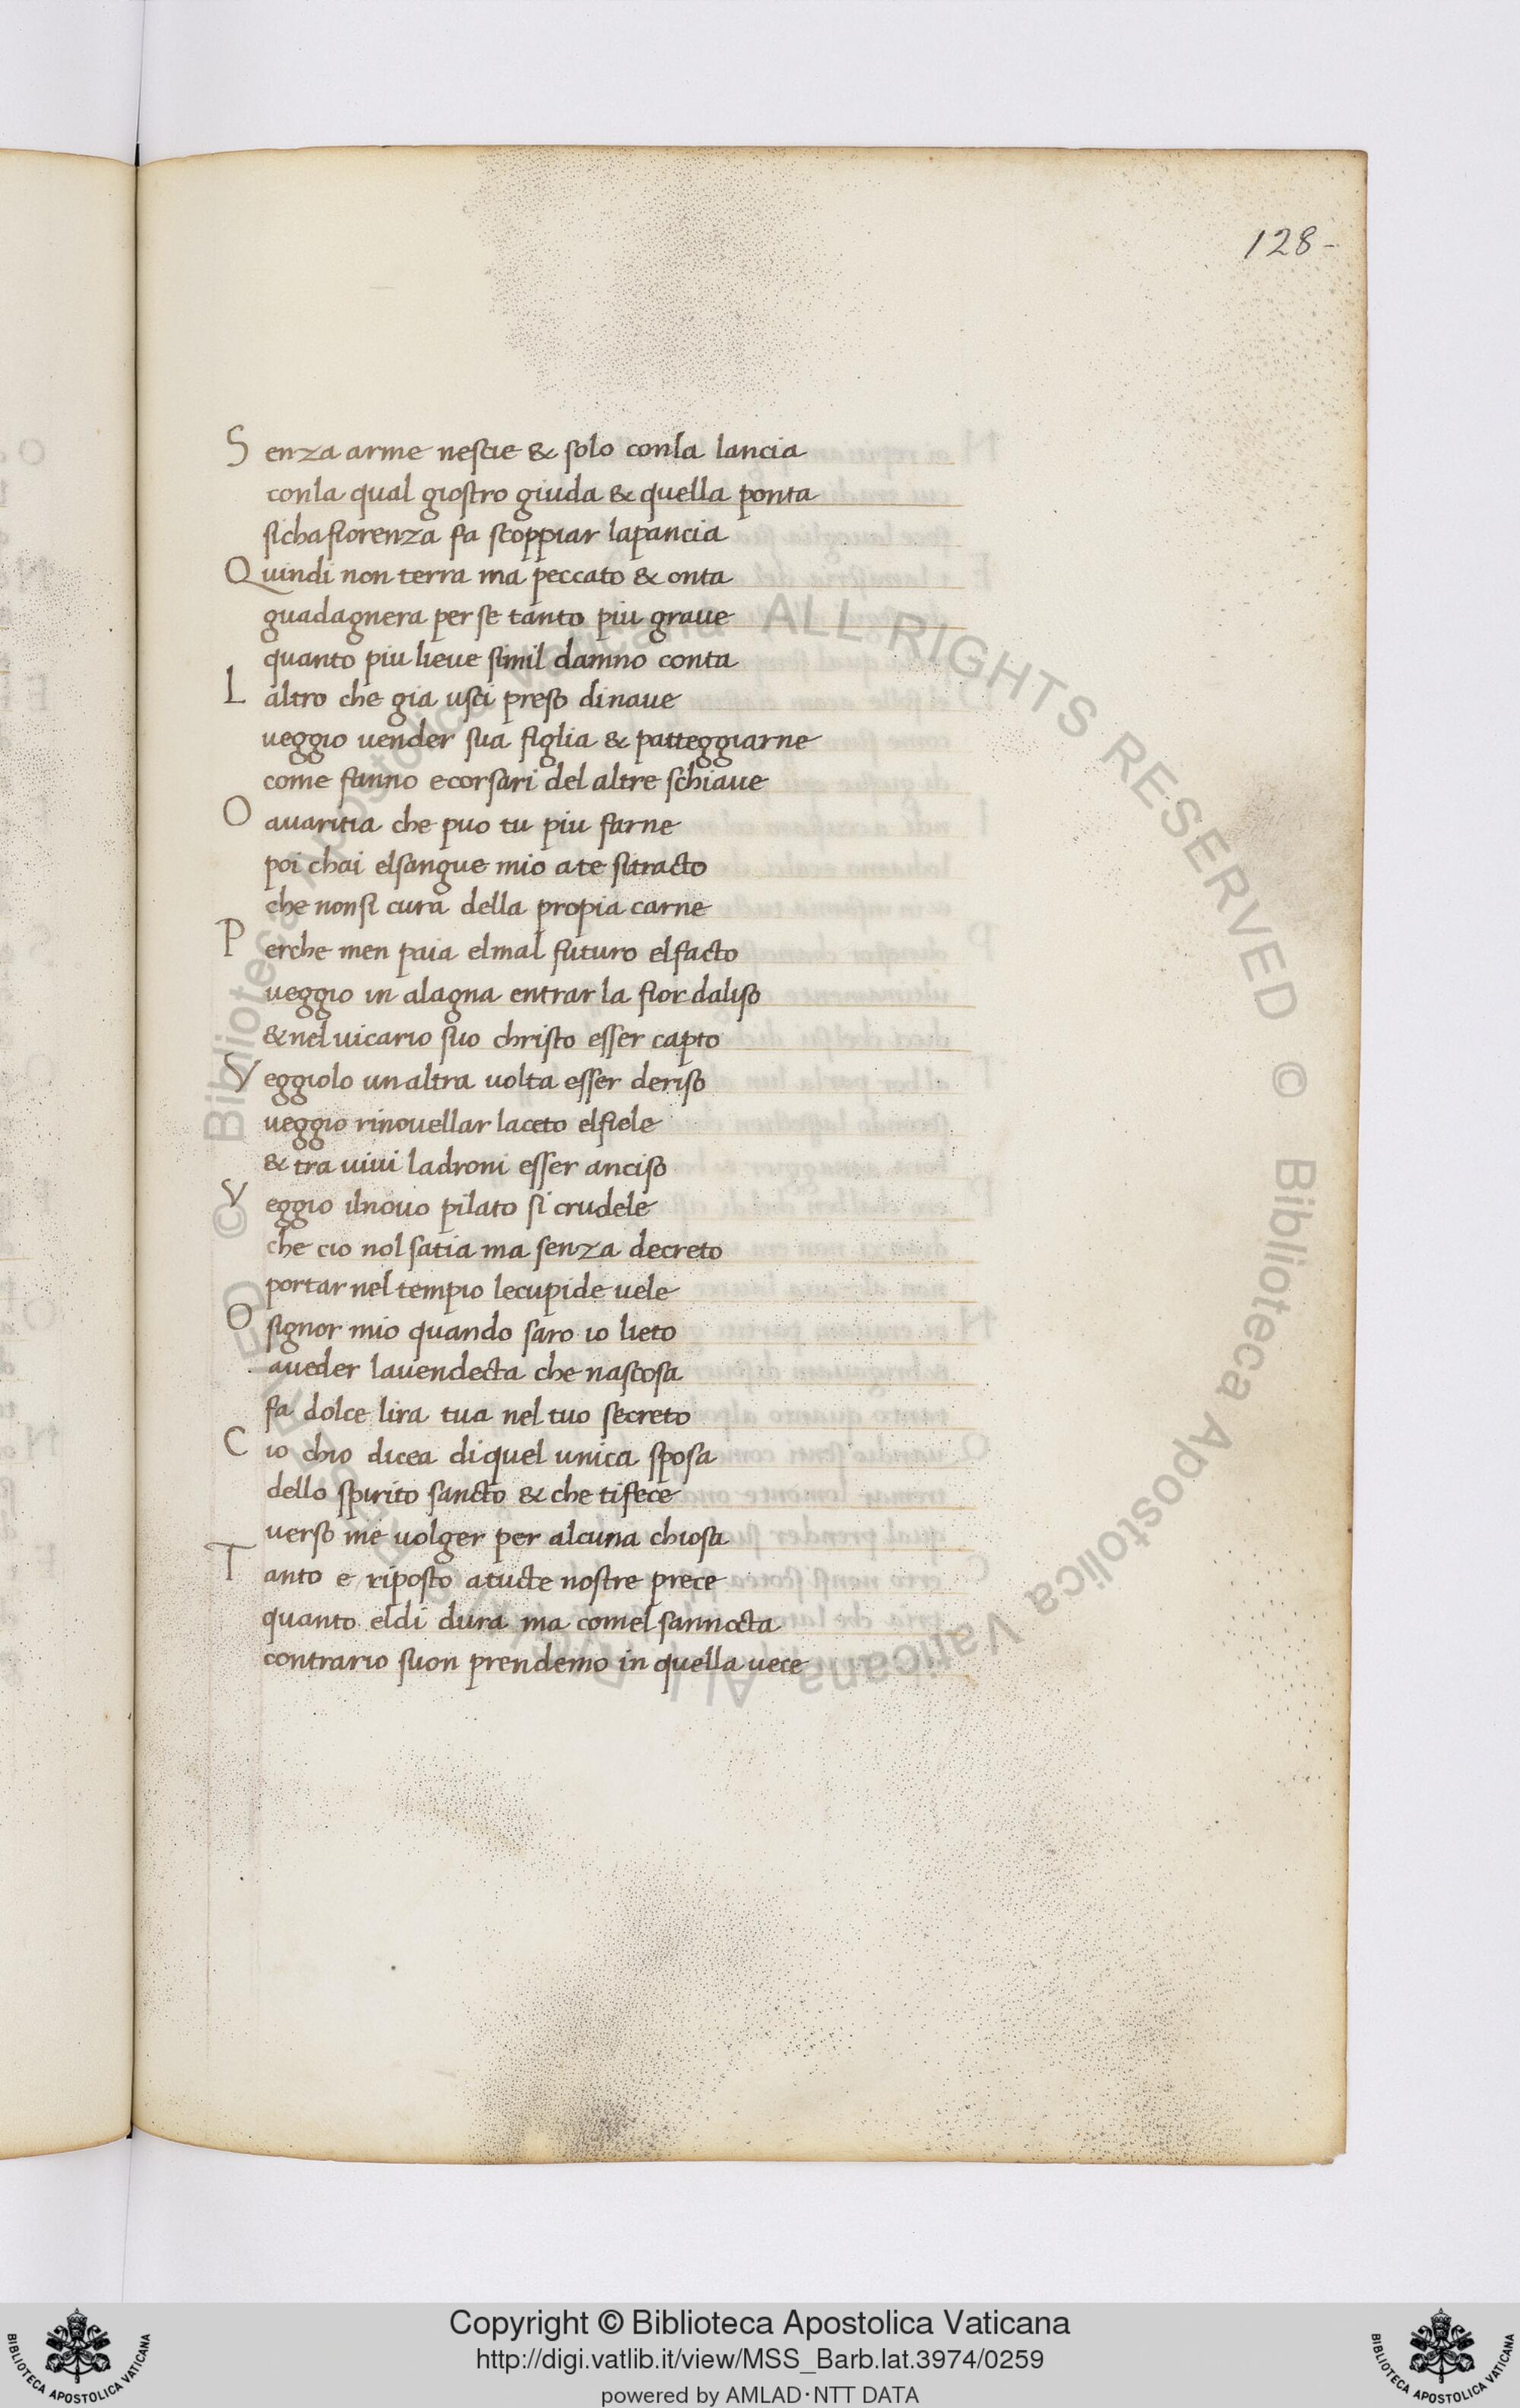 128-
Senza arme nescie & solo conla lancia
conla qual giostro giuda & quella ponta
sichafiorenza fa scoppiar lapancia
Quindi non terra ma peccato & onta
guadagnera perse tanto piu graue
quanto piu lieue simil damno conta
Laltro che gia usci preso dinaue
ueggio uender sua figlia & patteggiarne
come fanno ecorsari del altre schiaue
O auaritia che puo tu piu farne
poi chai elsangue mio ate sitracto
che nonsi cura della propia carne
Perche men paia elmal futuro elfacto
ueggio in alagna entrar la fior daliso
& nel uicario suo christo esser capto
Veggiolo un altra uolta esser deriso
ueggio rinouellar laceto elfiele
& tra uiui ladroni esser anciso
Veggio ilnouo pilato si crudele
che cio nol satia ma senza decreto
portar nel tempio lecupide uele
O signor mio quando saro io lieto
aueder lauendecta che nascosa
fa dolce lira tua nel tuo secreto
Cio chio dicea di quel unica sposa
dello spirito sancto & che tifece
uerso me uolger per alcuna chiosa
Tanto e riposto atucte nostre prece
quanto eldi dura ma comel sannocta
contrario suon prendemo in quella uece
© Biblioteca Apostolica Vaticana ALL RIGHTS RESERVED © Biblioteca Apostolica Vaticana ALL RIGHTS RESERVED
Copyright © Biblioteca Apostolica Vaticana
http://digi.vatlib.it/view/MSS_Barb.lat.3974/0259
powered by AMLAD·NTT DATA
BIBLIOTECA APOSTOLICA VATICANA
BIBLIOTECA APOSTOLICA VATICANA